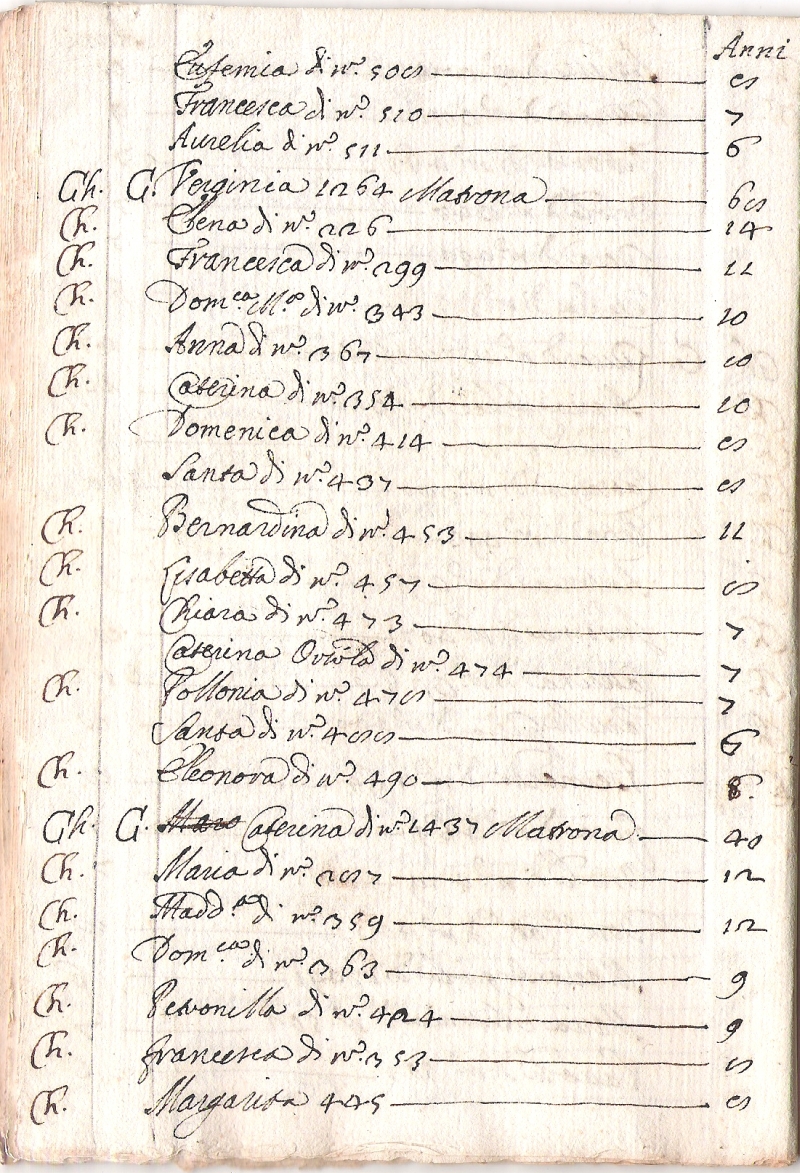 Anni
Eufemia di n.º 508 — 8
Francesca di n.º 510 — 7
Aurelia di n.º 511 — 6
Ch. C. Verginia 1264 Matrona — 68
Ch. Elena di n.º 226 — 14
Ch. Francesca di n.º 299 — 11
Ch. Dom.ca M.a di n.º 343 — 10
Ch. Anna di n.º 367 — 10
Ch. Caterina di n.º 354 — 10
Ch. Domenica di n.º 414 — 8
Santa di n.º 437 — 8
Ch. Bernardina di n.º 453 — 11
Ch. Lisabetta di n.º 457 — 8
Ch. Chiara di n.º 473 — 7
Caterina Orsola di n.º 474 — 7
Ch. Pollonia di n.º 478 — 7
Santa di n.º 488 — 6
Ch. Eleonora di n.º 490 — 8.
Ch. C. Caterina di n.º 1437 Matrona — 48
Ch. Maria di n.º 287 — 12
Ch. Madd.a di n.º 359 — 12
Ch. Dom.ca di n.º 363 — 9
Ch. Petronilla di n.º 424 — 9
Ch. Francesca di n.º 353 — 8
Ch. Margarita 445 — 8